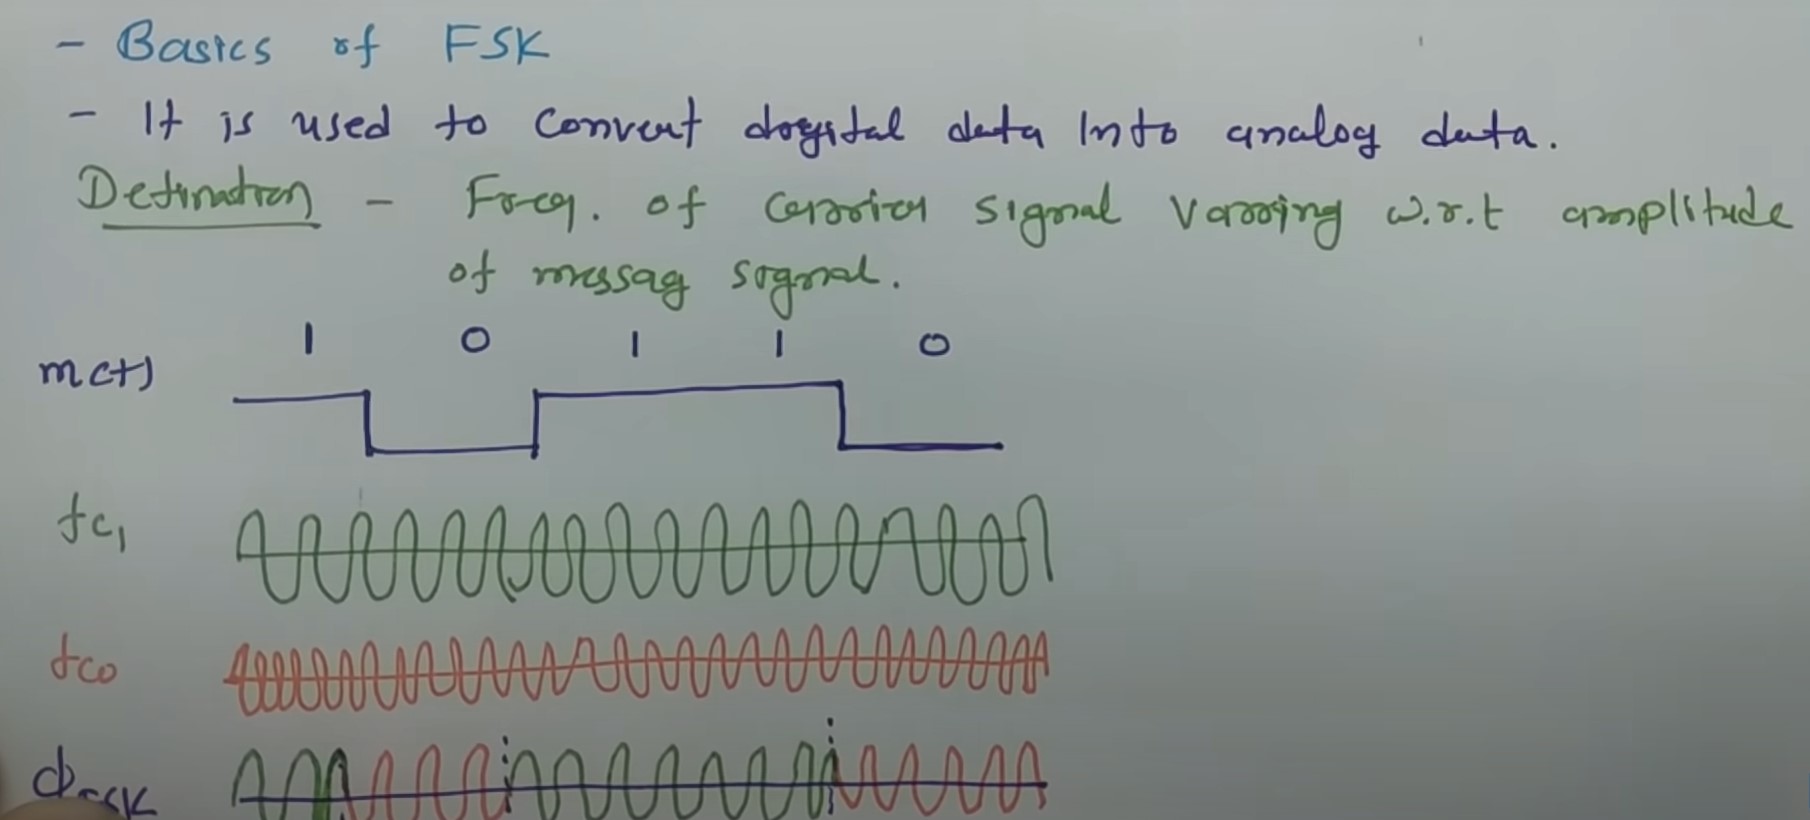 - Basics of FSK
- It is used to convert digital data into analog data.
Defination - Freq. of carrier signal varring w.r.t amplitude
of messag signal.
1 0 1 1 0
m(t)
fc1
fc0
ΦFSK